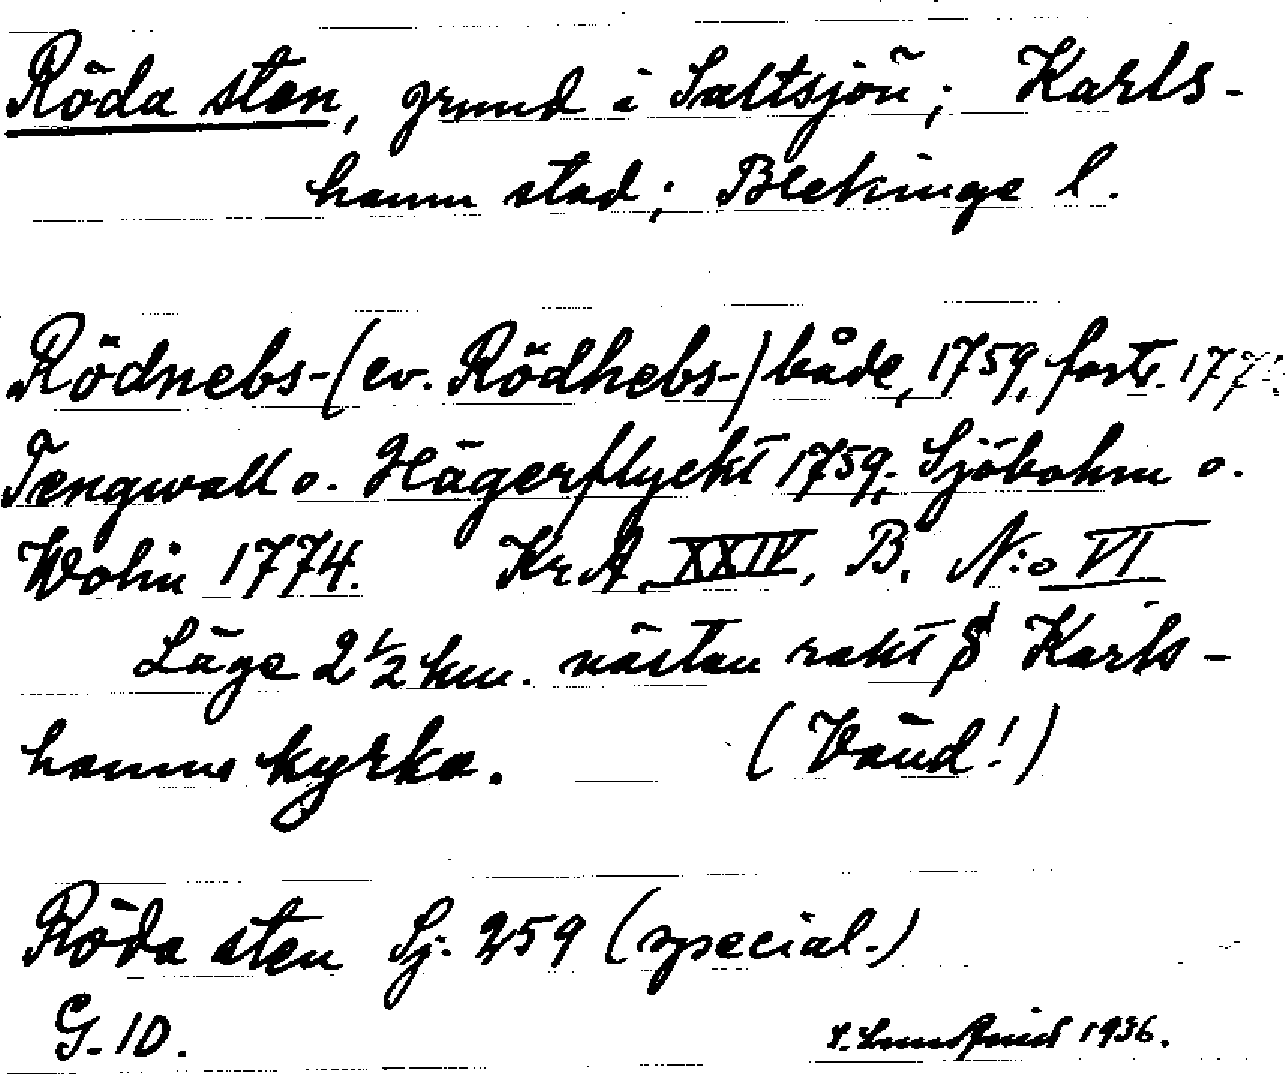 Röda sten, grund i Saltsjön; Karls-
hamn stad; Blekinge l.
Rödnebs-(ev. Rödhebs-) både, 1759, forts. 177
Tengwall o. Hägerflyckt 1759; Sjöbohm o.
Wolin 1774. Kr. A. XXIV, B. N:o VI
Läge 2 1/2 km. nästan rakt S Karls-
hamns kyrka. (Vänd!)
Röda sten Sj. 259 (special.)
G. 10. 1936.